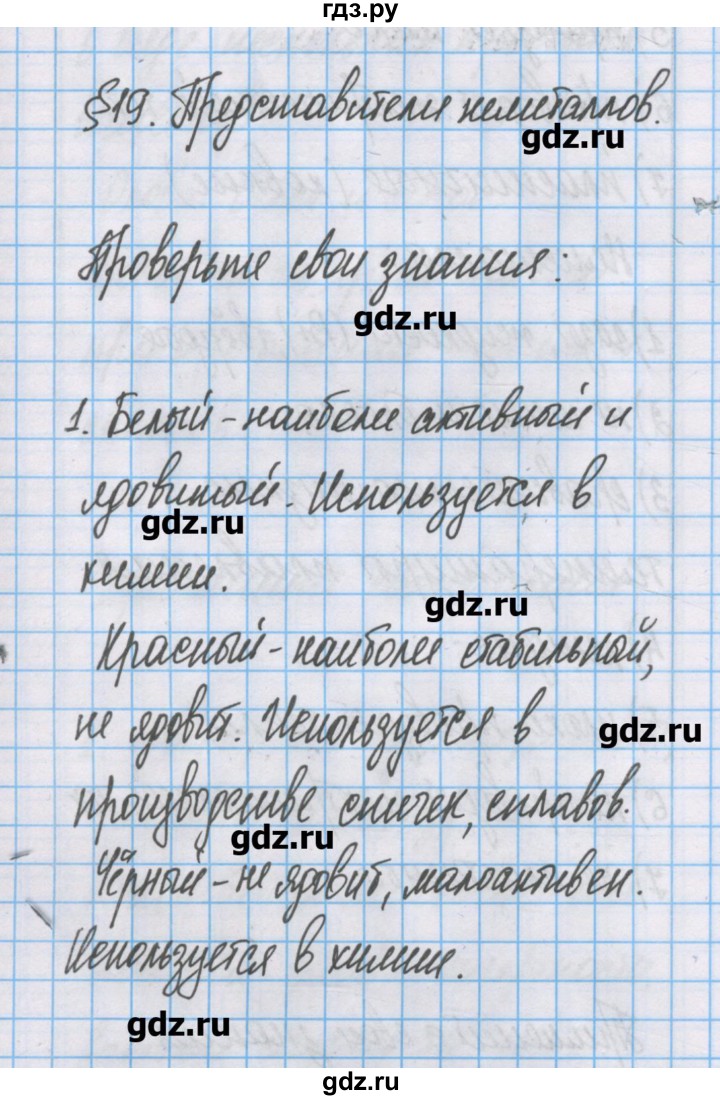 гдз.ру
§19. Представители неметаллов.
gdz.ru
Проверьте свои знания:
gdz.ru
1. Белый - наиболее активный и
ядовитый. Используется в
gdz.ru
химии.
gdz.ru
Красный - наиболее стабильный,
не ядовит. Используется в
gdz.ru
производстве спичек, сплавов.
gdz.ru
Чёрный - не ядовит, малоактивен.
Используется в химии.
gdz.ru
gdz.ru